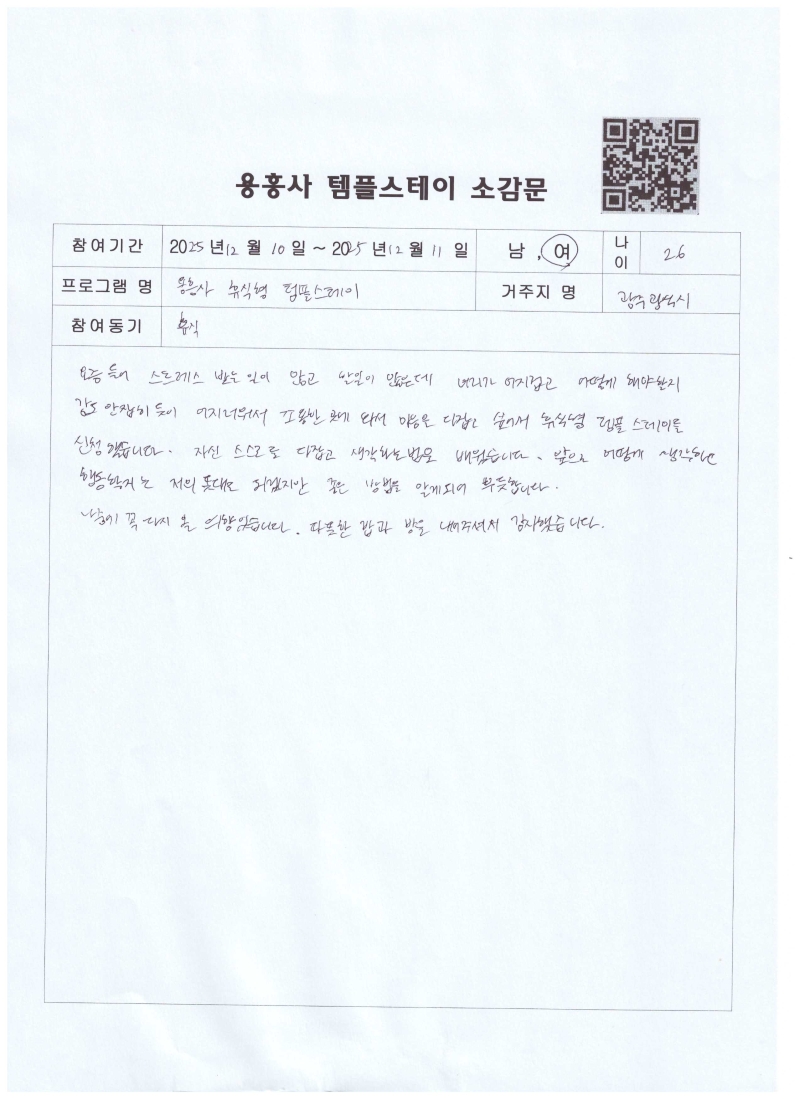 용흥사 템플스테이 소감문
참여기간 2025년 12월 10일 ~ 2025년 12월 11일 남, 여 나이 26
프로그램 명 용흥사 휴식형 템플스테이 거주지 명 광주광역시
참여동기 휴식
요즘 들어 스트레스 받는 일이 많고 많은데 머리가 어지럽고 어떻게 해야할지
감도 안잡히 듯이 어지러워서 조용한 곳에 와서 마음을 다잡고 싶어서 휴식형 템플 스테이를
신청했습니다. 자신 스스로를 다잡고 생각하는법을 배웠습니다. 앞으로 어떻게 생각하면
행동할지는 저의 몫대로 하겠지만 좋은 방법을 알게되어 뿌듯합니다.
꼭 다시 올 의향있습니다. 따뜻한 밥과 방을 내어주셔서 감사했습니다.